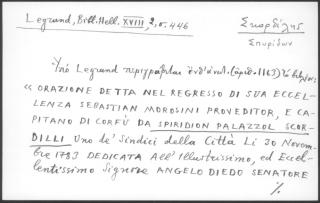 Legrand, Bibl. Hell. XVIII, 2, σ. 446
Σκορδίλης
Σπυρίδων
Ὑπὸ Legrand περιγράφεται ἀνὰ (ἀριθ. 1163) τὸ
« ORAZIONE DETTA NEL REGRESSO DI SUA ECCEL-
LENZA SEBASTIAN MOROSINI PROVEDITOR, E CA-
PITANO DI CORFÙ DA SPIRIDION PALAZZOL SCOR-
DILLI Uno de' Sindici della Città Li 30 Novem-
bre 1783 DEDICATA All' Illustrissimo, ed Eccel-
lentissimo Signore ANGELO DIEDO SENATORE
%.